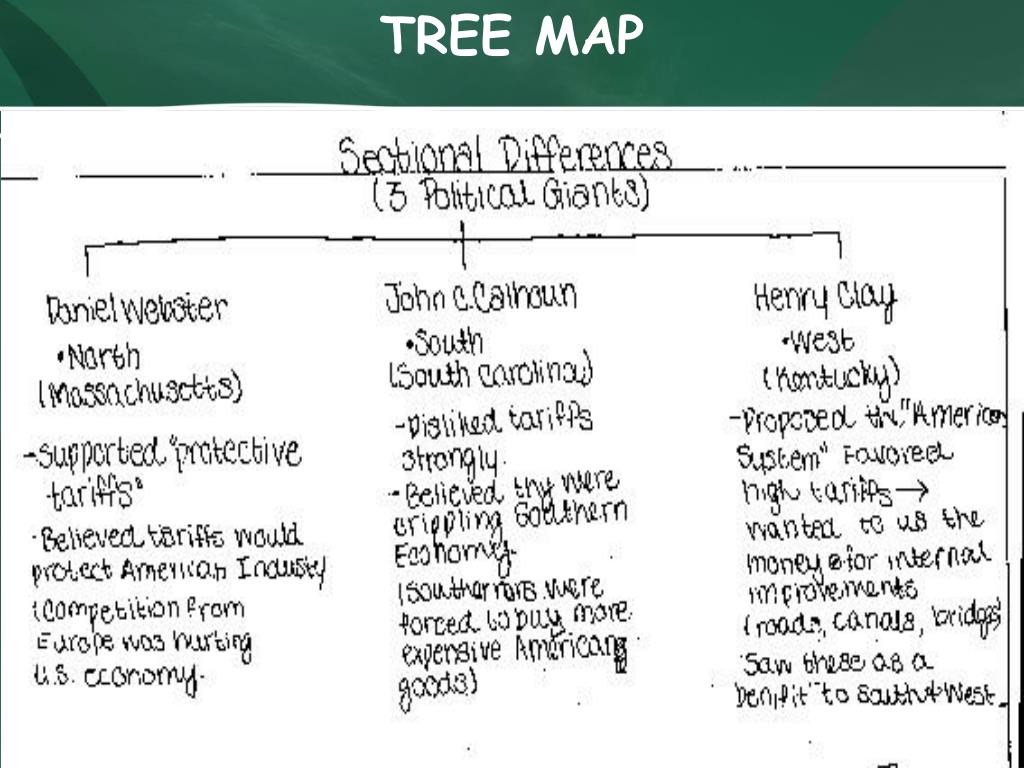 TREE MAP
Sectional Differences
(3 Political Giants)
Daniel Webster
•North
(Massachusetts)
-supported "protective
tariffs"
·Believed tariffs would
protect American Industy
(Competition from
Europe was hurting
U.S. economy.
John C. Calhoun
•South
(South Carolina)
-Disliked tariffs
strongly.
-Believed thy were
crippling Southern
Economy.
(Southerners were
forced to buy more
expensive American
goods)
Henry Clay
•West
(Kentucky)
-Proposed the "American
System" Favored
high tariffs →
wanted to us the
money for internal
improvements
(roads, canals, bridges)
Saw these as a
"benifit" to South & West.